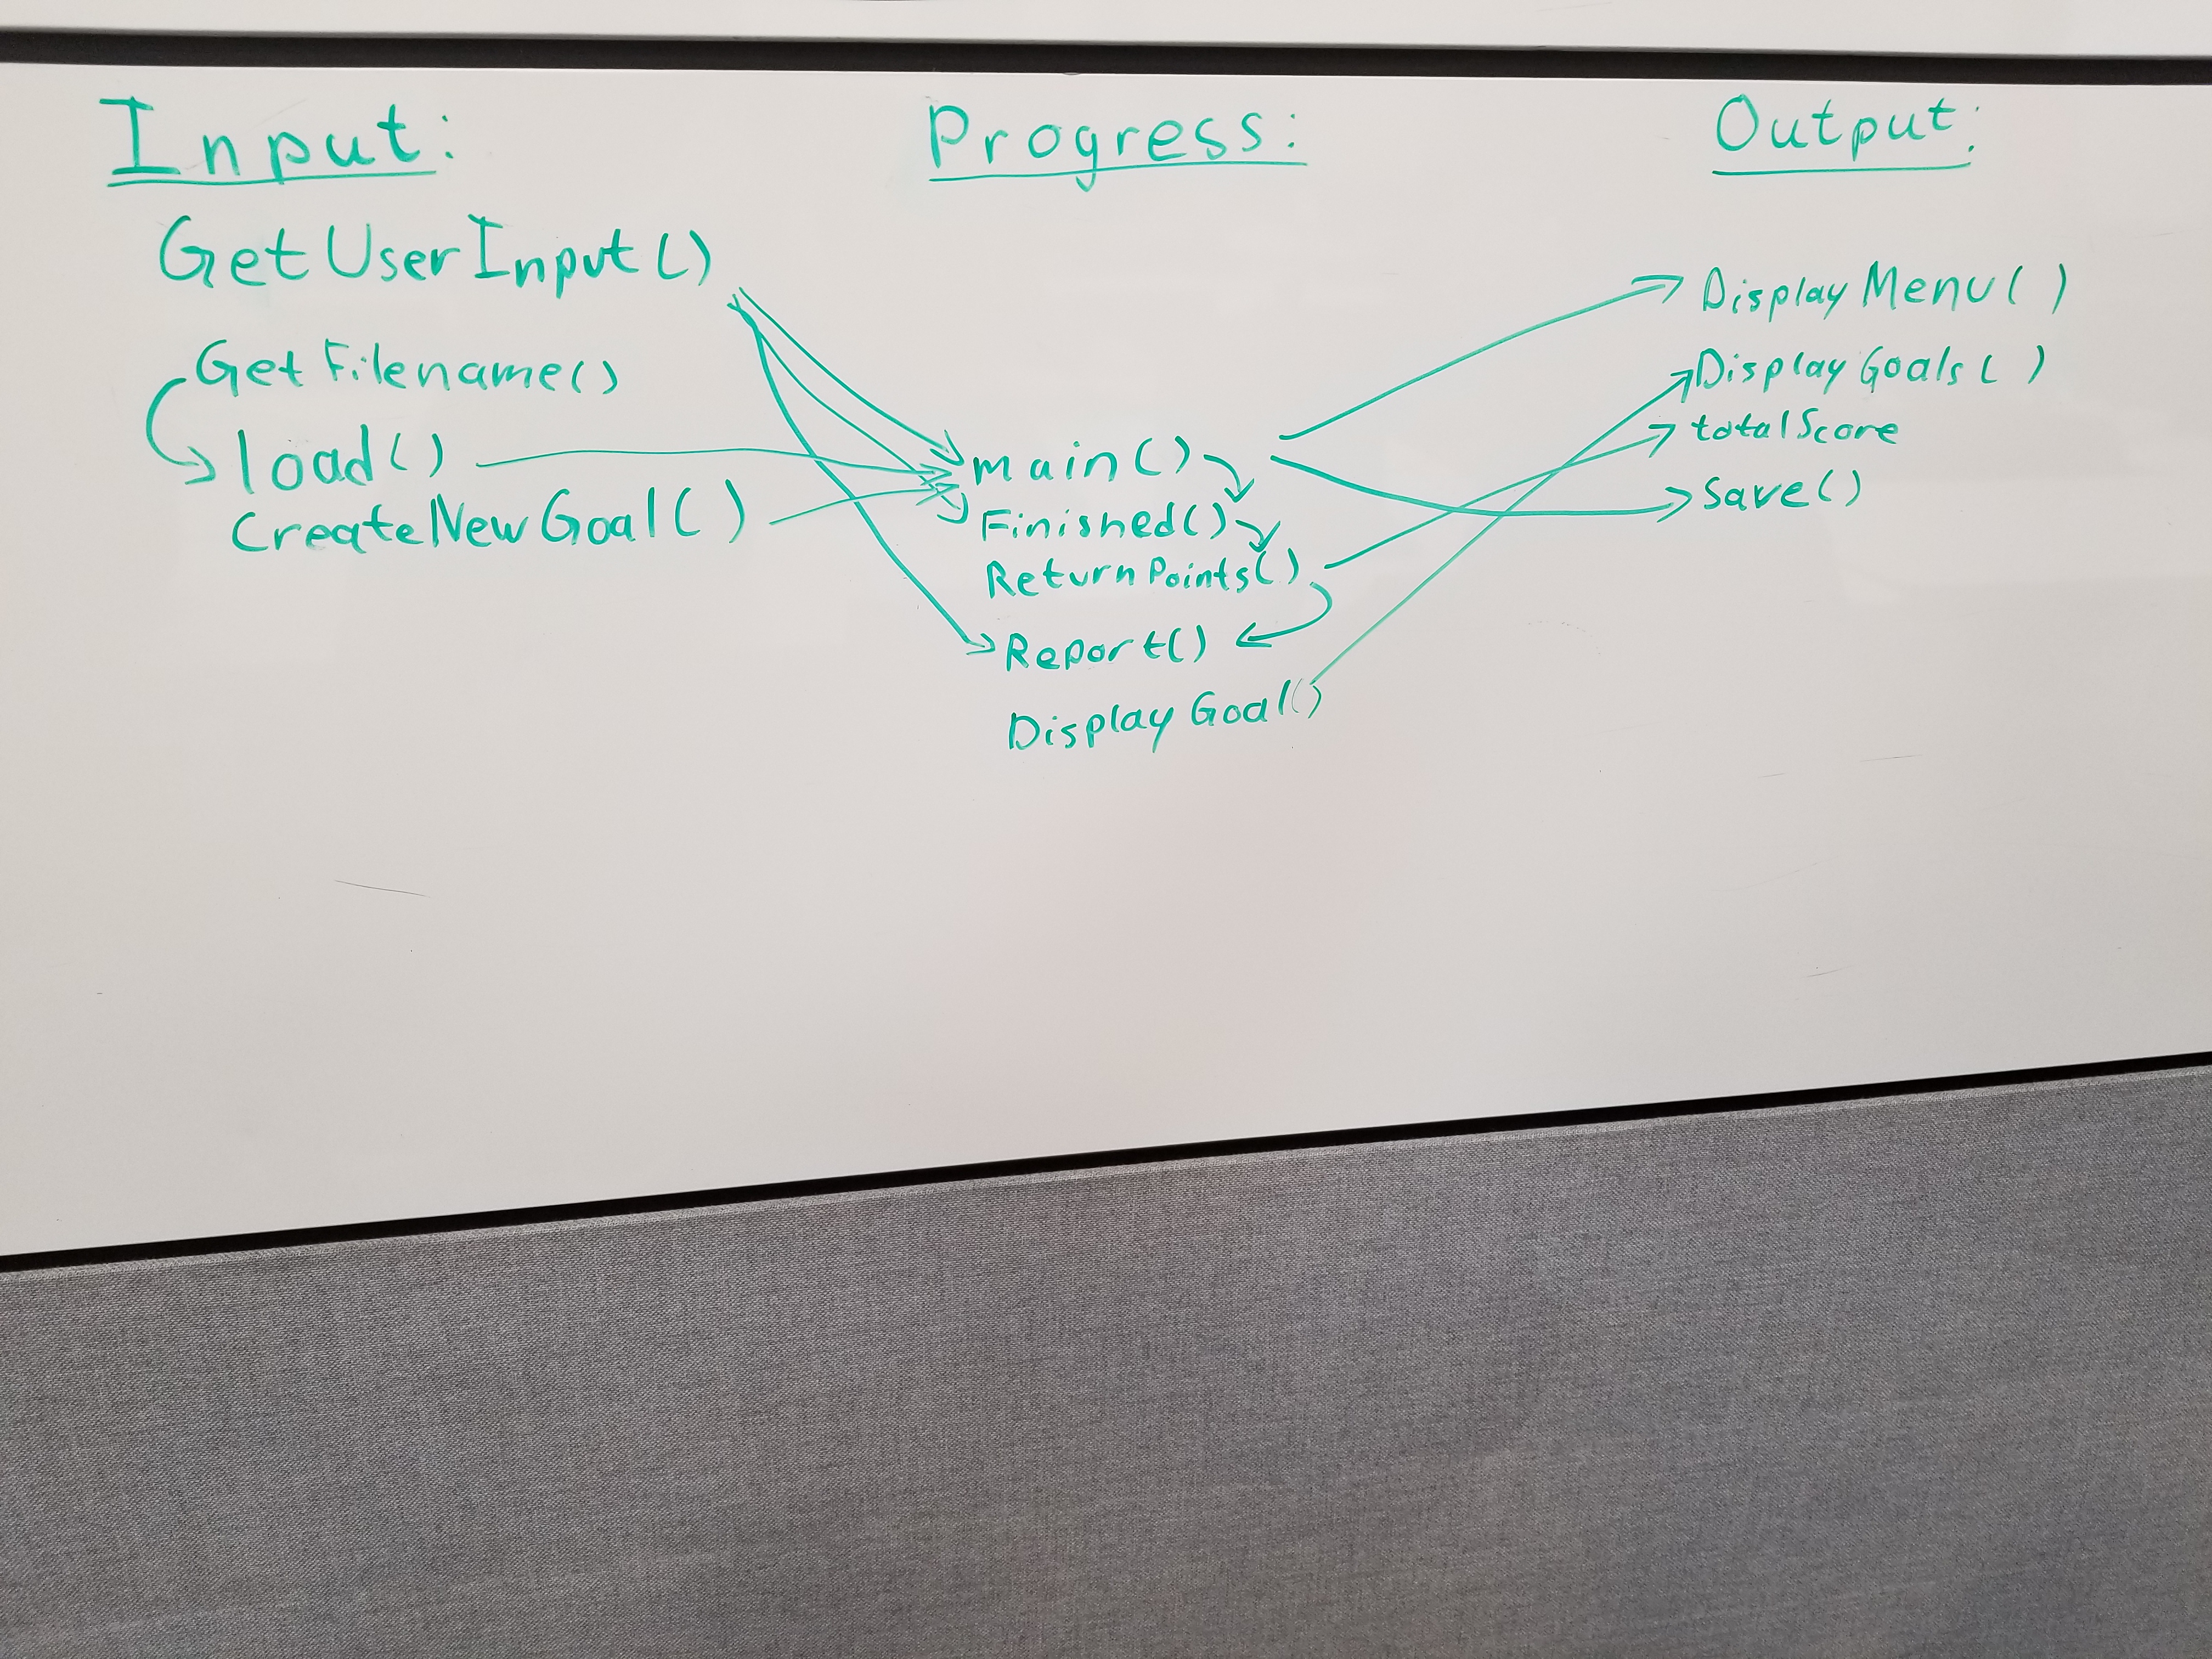 Input:
GetUserInput()
GetFilename()
load()
CreateNewGoal()
Progress:
main()
Finished()
ReturnPoints()
Report()
Display Goal()
Output:
DisplayMenu()
DisplayGoals()
totalScore
Save()